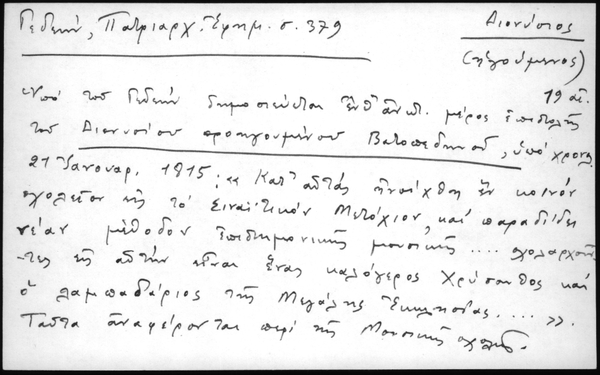 Γεδεών, Πατριαρχ. Ἐφημ. σ. 379
Διονύσιος
(ἡγούμενος)
19 αἰ.
Ὑπὸ τοῦ Γεδεὼν δημοσιεύεται ἐνθ' ἀνωτ. μέρος ἐπιστολῆς
τοῦ Διονυσίου προηγουμένου Βατοπεδηνοῦ, ὑπὸ χρον.
21 Ἰανουαρ. 1815: «Κατ' αὐτὰς ἠνοίχθη ἓν κοινὸν
σχολεῖον εἰς τὸ Σιναϊτικὸν Μετόχιον, καὶ παραδίδει
νέαν μέθοδον ἐπιστημονικῆς μουσικῆς .... σχολαρχοῦν-
-τες εἰς αὐτὴν εἶναι ἕνας καλόγερος Χρύσανθος καὶ
ὁ λαμπαδάριος τῆς Μεγάλης Ἐκκλησίας.... ».
Ταῦτα ἀναφέρονται περὶ τῆς Μουσικῆς σχολῆς.